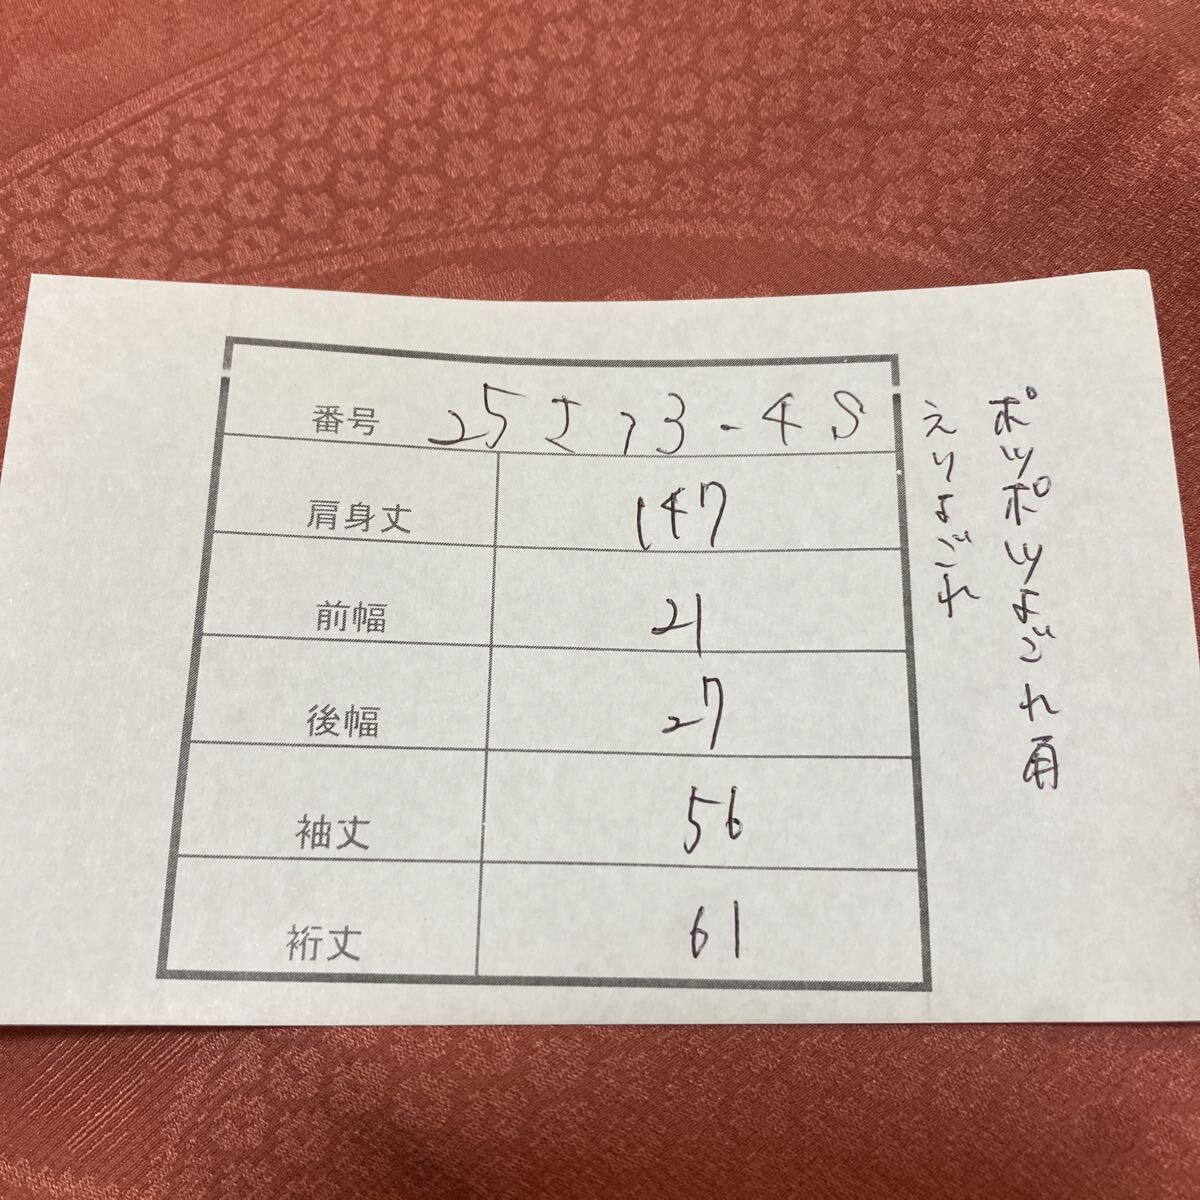 番号 25513-4S
肩身丈 147
前幅 21
後幅 27
袖丈 56
裄丈 61
ポツポツよごれ有
えりよごれ